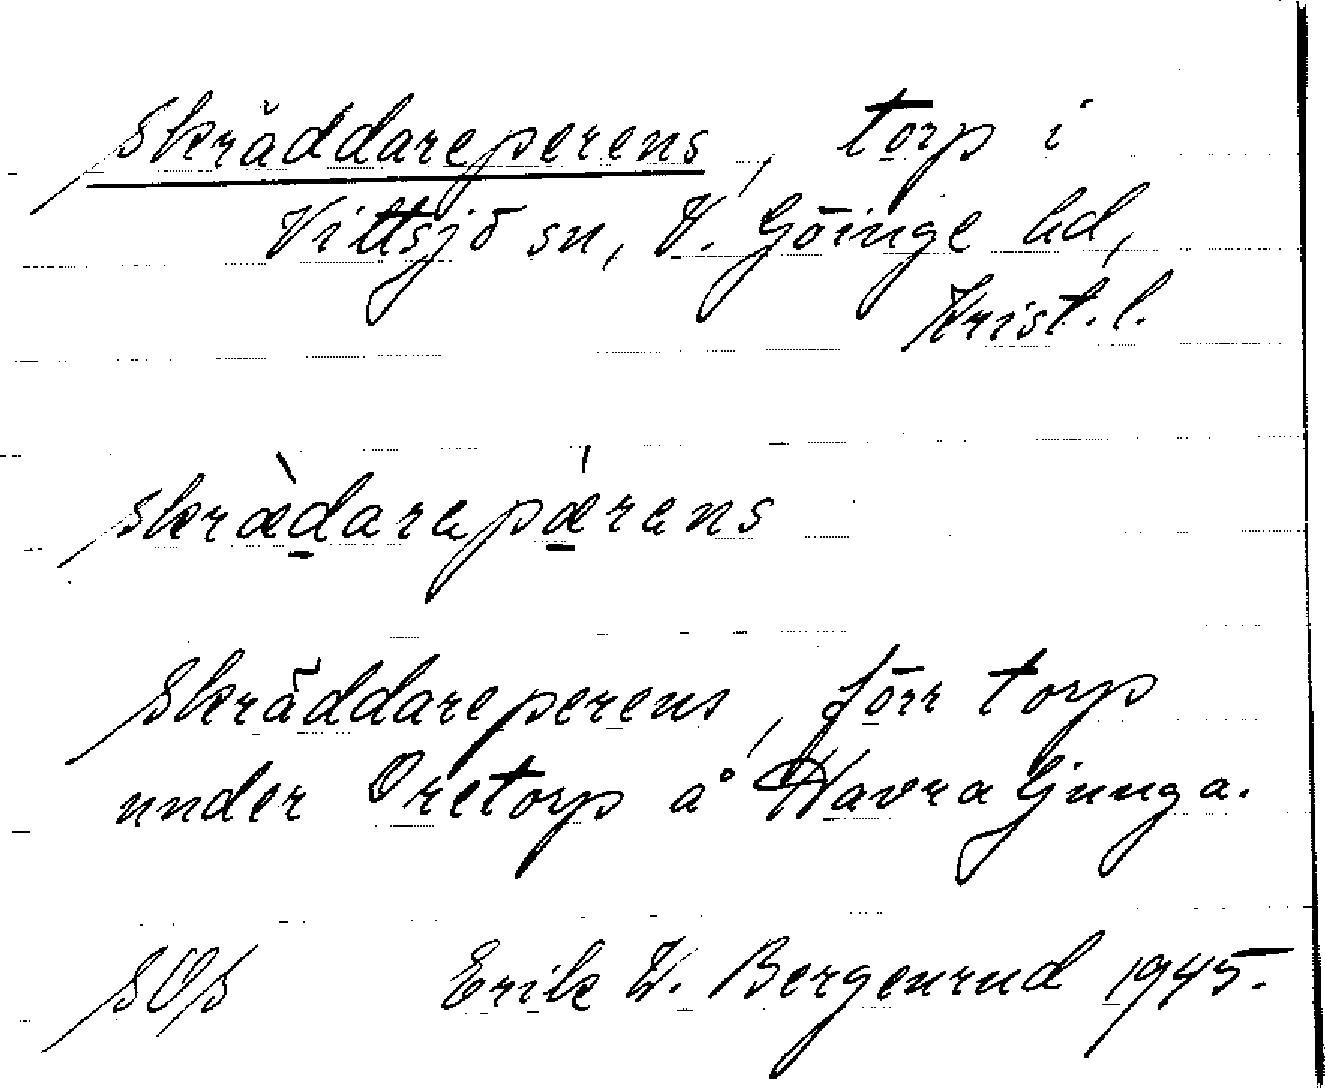 Skräddareperens, torp i
Vittsjö sn, V. Göinge hd,
Krist. l.
skræ̀darapǽrans
Skräddareperens, förr torp
under Oretorp å Havraljunga.
SOS Erik W. Bergenrud 1945.